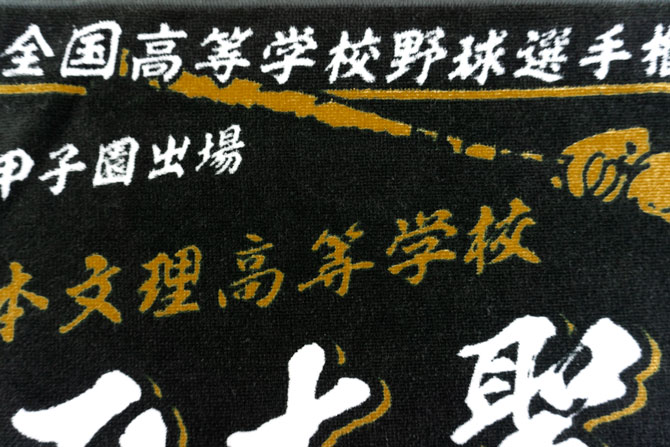 全国高等学校野球選手権
甲子園出場
本文理高等学校